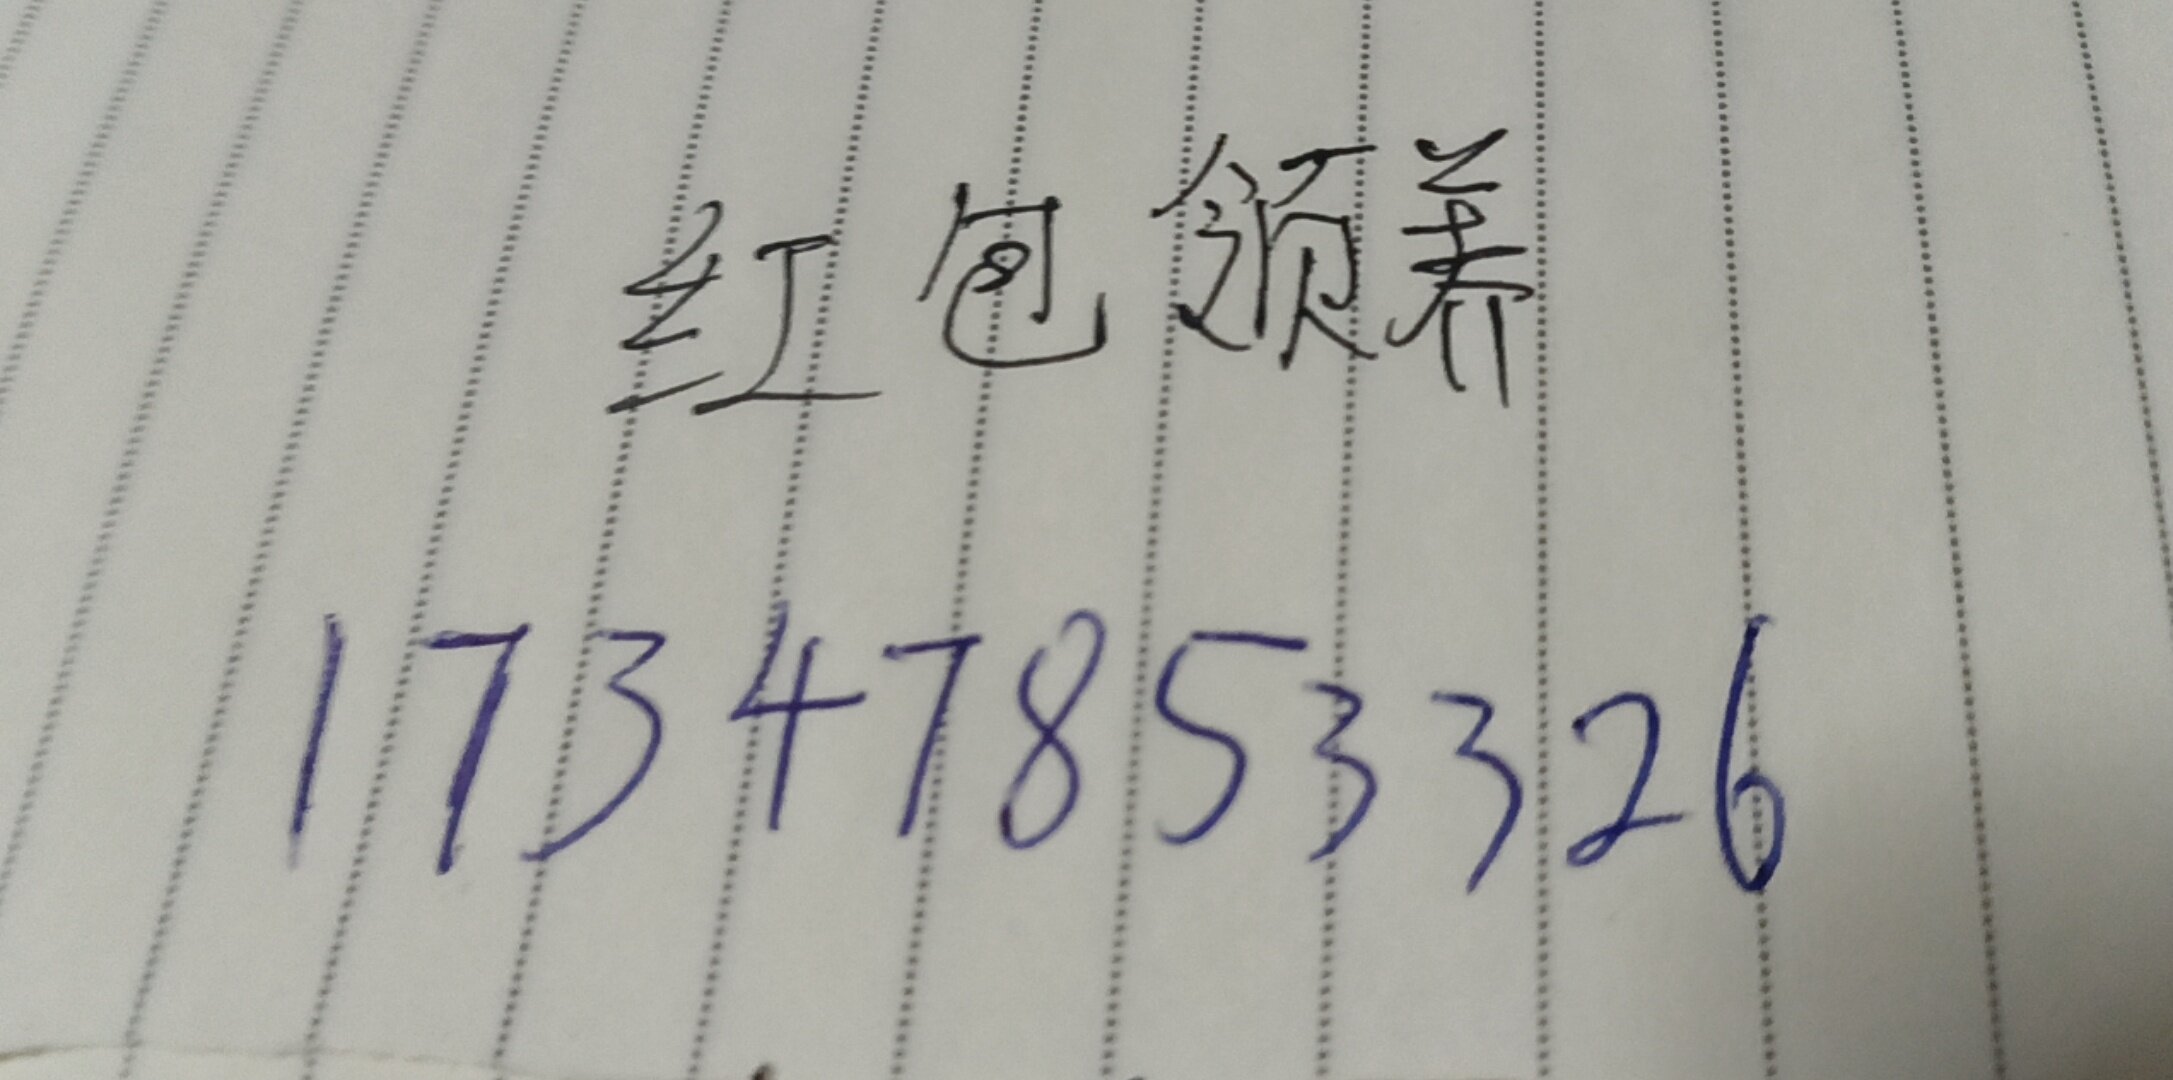 红包领养
17347853326